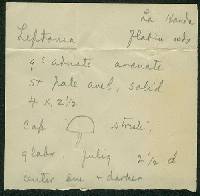 La Honda
Leptonia
g's adnate arcuate
St pale avel, solid
4 x 2½
Cap striate
glabr 2½ d
center em + darker